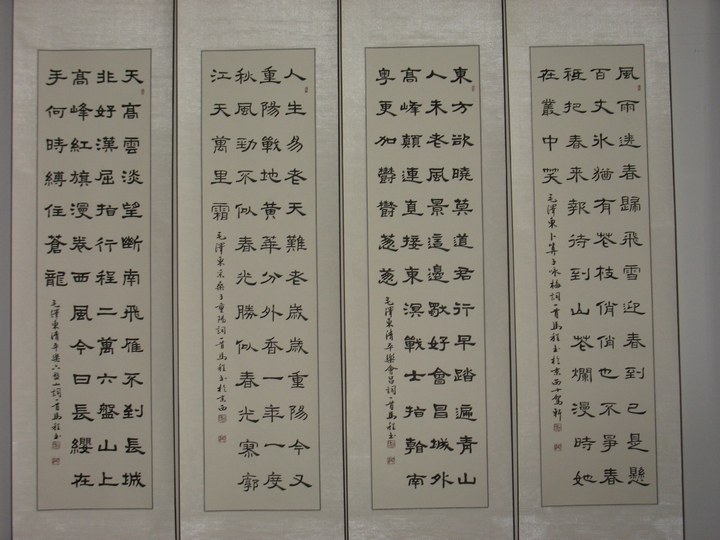 風雨送春歸飛雪迎春到已是懸
百丈冰猶有花枝俏俏也不爭春
祇把春來報待到山花爛漫時她
在叢中笑 毛澤東卜算子咏梅詞一首馬程玉於京西十駕軒
東方欲曉莫道君行早踏遍青山
人未老風景這邊獨好會昌城外
高峰顛連直接東溟戰士指看南
粵更加鬱鬱蔥蔥 毛澤東清平樂會昌詞一首馬程玉
人生易老天難老歲歲重陽今又
重陽戰地黃華分外香一年一度
秋風勁不似春光勝似春光寥廓
江天萬里霜 毛澤東采桑子重陽詞一首馬程玉於京西
天高雲淡望斷南飛雁不到長城
非好漢屈指行程二萬六盤山上
高峰紅旗漫卷西風今日長纓在
手何時縛住蒼龍 毛澤東清平樂六盤山詞一首馬程玉